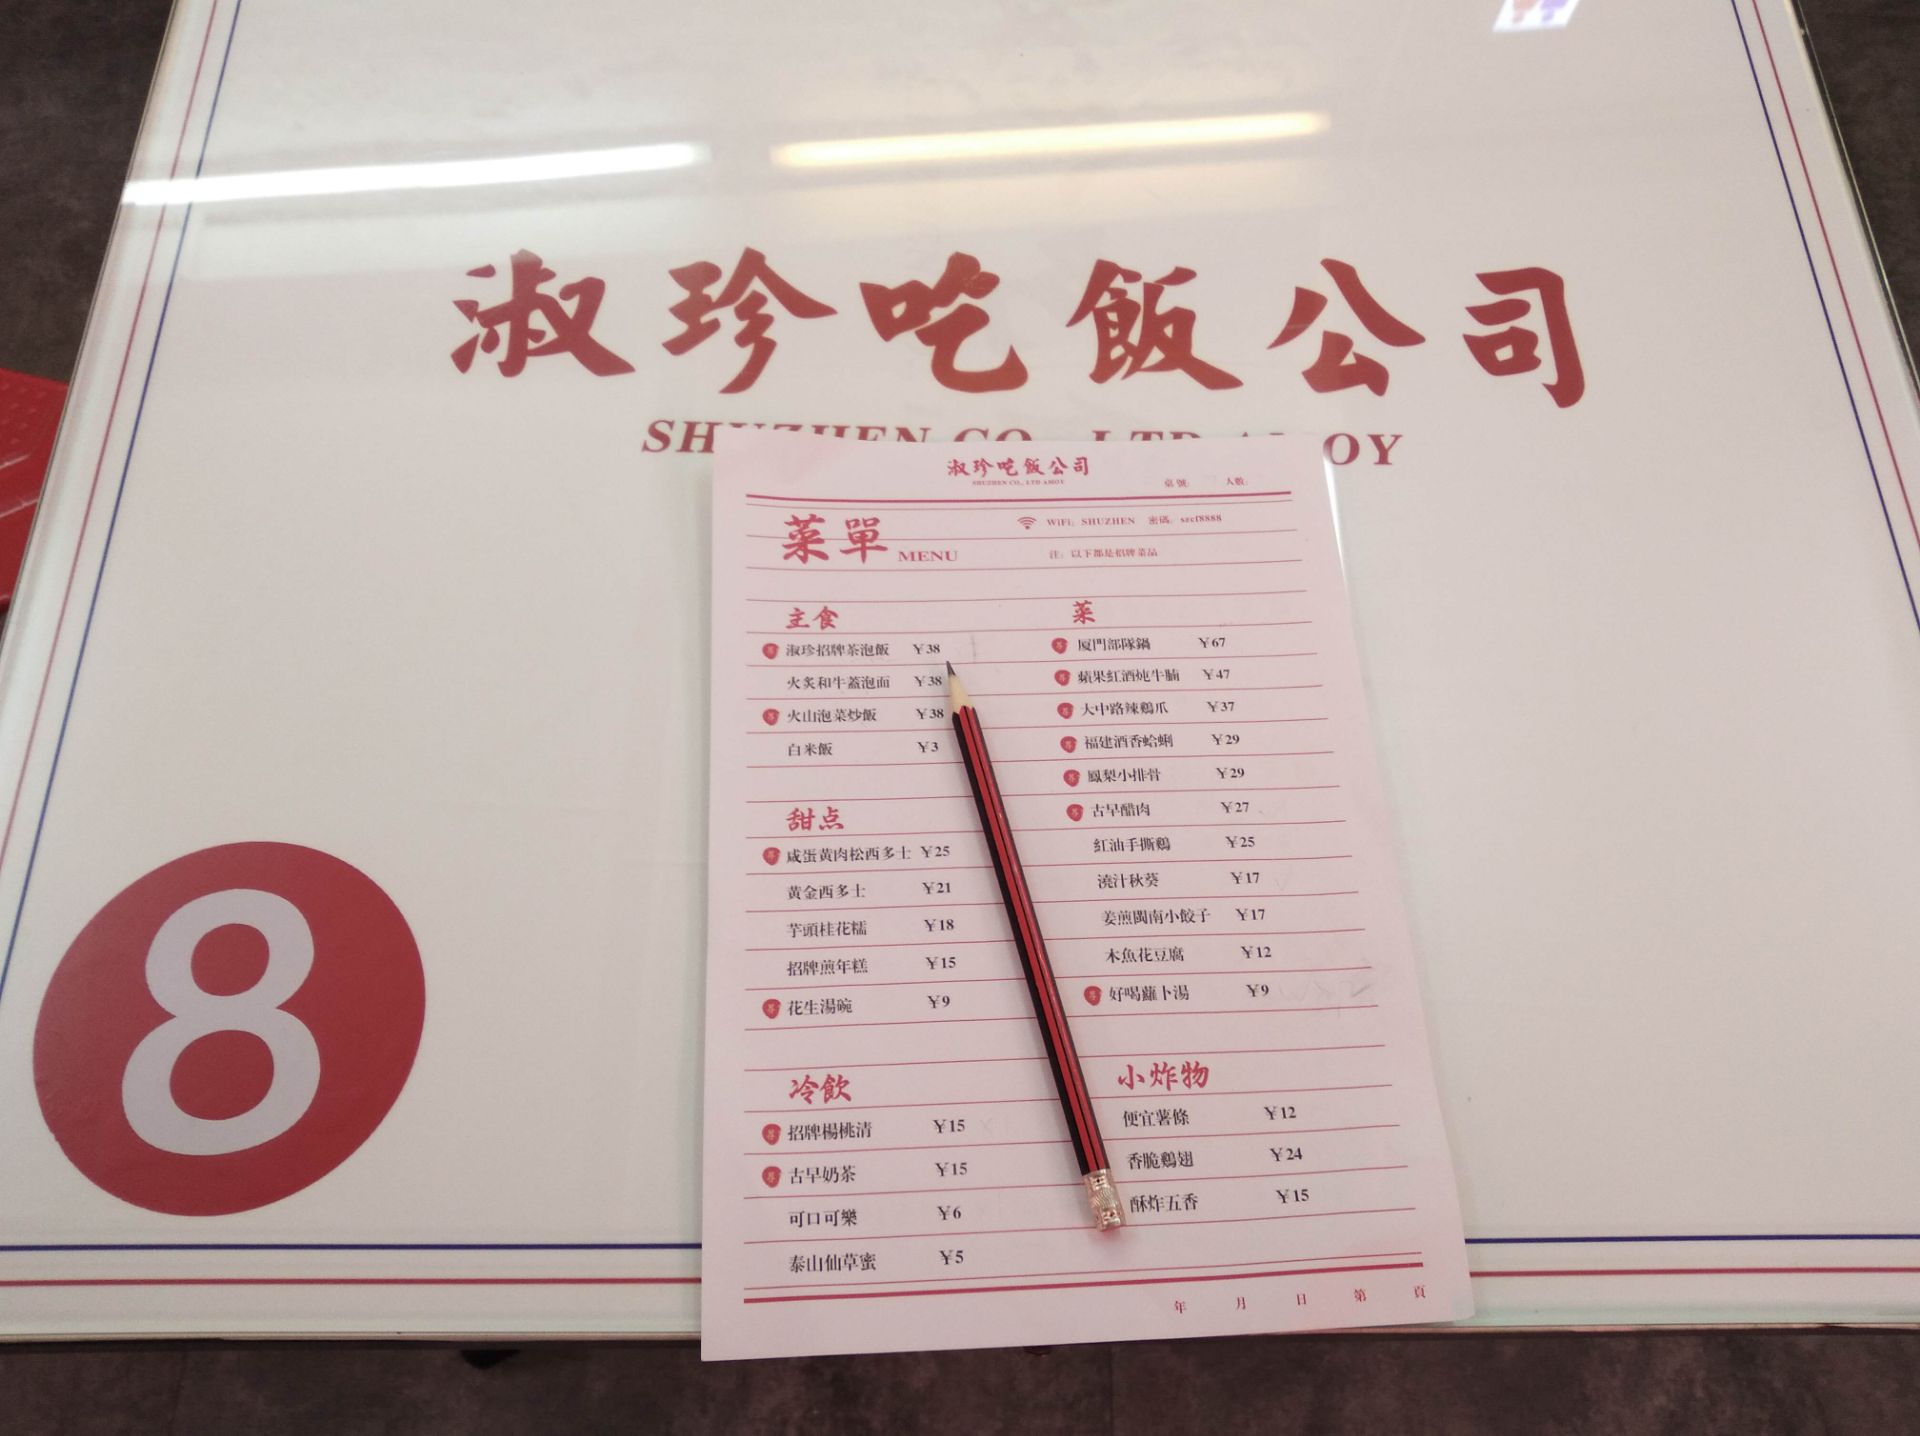 淑珍吃飯公司
SHUZHEN CO., LTD AMOY
8
淑珍吃飯公司
SHUZHEN CO., LTD AMOY
桌號: 人數:
菜單 MENU
WiFi: SHUZHEN 密碼: szcf8888
注: 以下都是招牌菜品
主食
荐 淑珍招牌茶泡飯 ¥38
火炙和牛蓋泡面 ¥38
荐 火山泡菜炒飯 ¥38
白米飯 ¥3
甜点
荐 咸蛋黃肉松西多士 ¥25
黃金西多士 ¥21
芋頭桂花糯 ¥18
招牌煎年糕 ¥15
荐 花生湯碗 ¥9
冷飲
荐 招牌楊桃清 ¥15
荐 古早奶茶 ¥15
可口可樂 ¥6
泰山仙草蜜 ¥5
菜
荐 厦門部隊鍋 ¥67
荐 蘋果紅酒炖牛腩 ¥47
荐 大中路辣鷄爪 ¥37
荐 福建酒香蛤蜊 ¥29
荐 鳳梨小排骨 ¥29
荐 古早醋肉 ¥27
紅油手撕鷄 ¥25
澆汁秋葵 ¥17
姜煎閩南小餃子 ¥17
木魚花豆腐 ¥12
荐 好喝蘿卜湯 ¥9
小炸物
便宜薯條 ¥12
香脆鷄翅 ¥24
酥炸五香 ¥15
年 月 日 第 頁